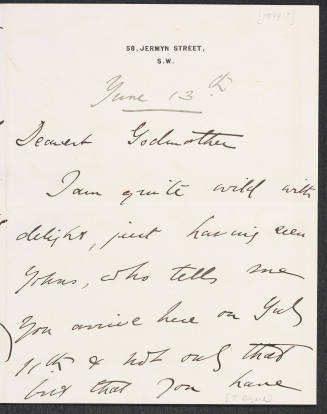 [1899?]
58, JERMYN STREET,
S.W.
June 13th
Dearest Godmother
I am quite wild with
delight, just having seen
Johns, who tells me
you arrive here on July
11th & not only that
but that you have